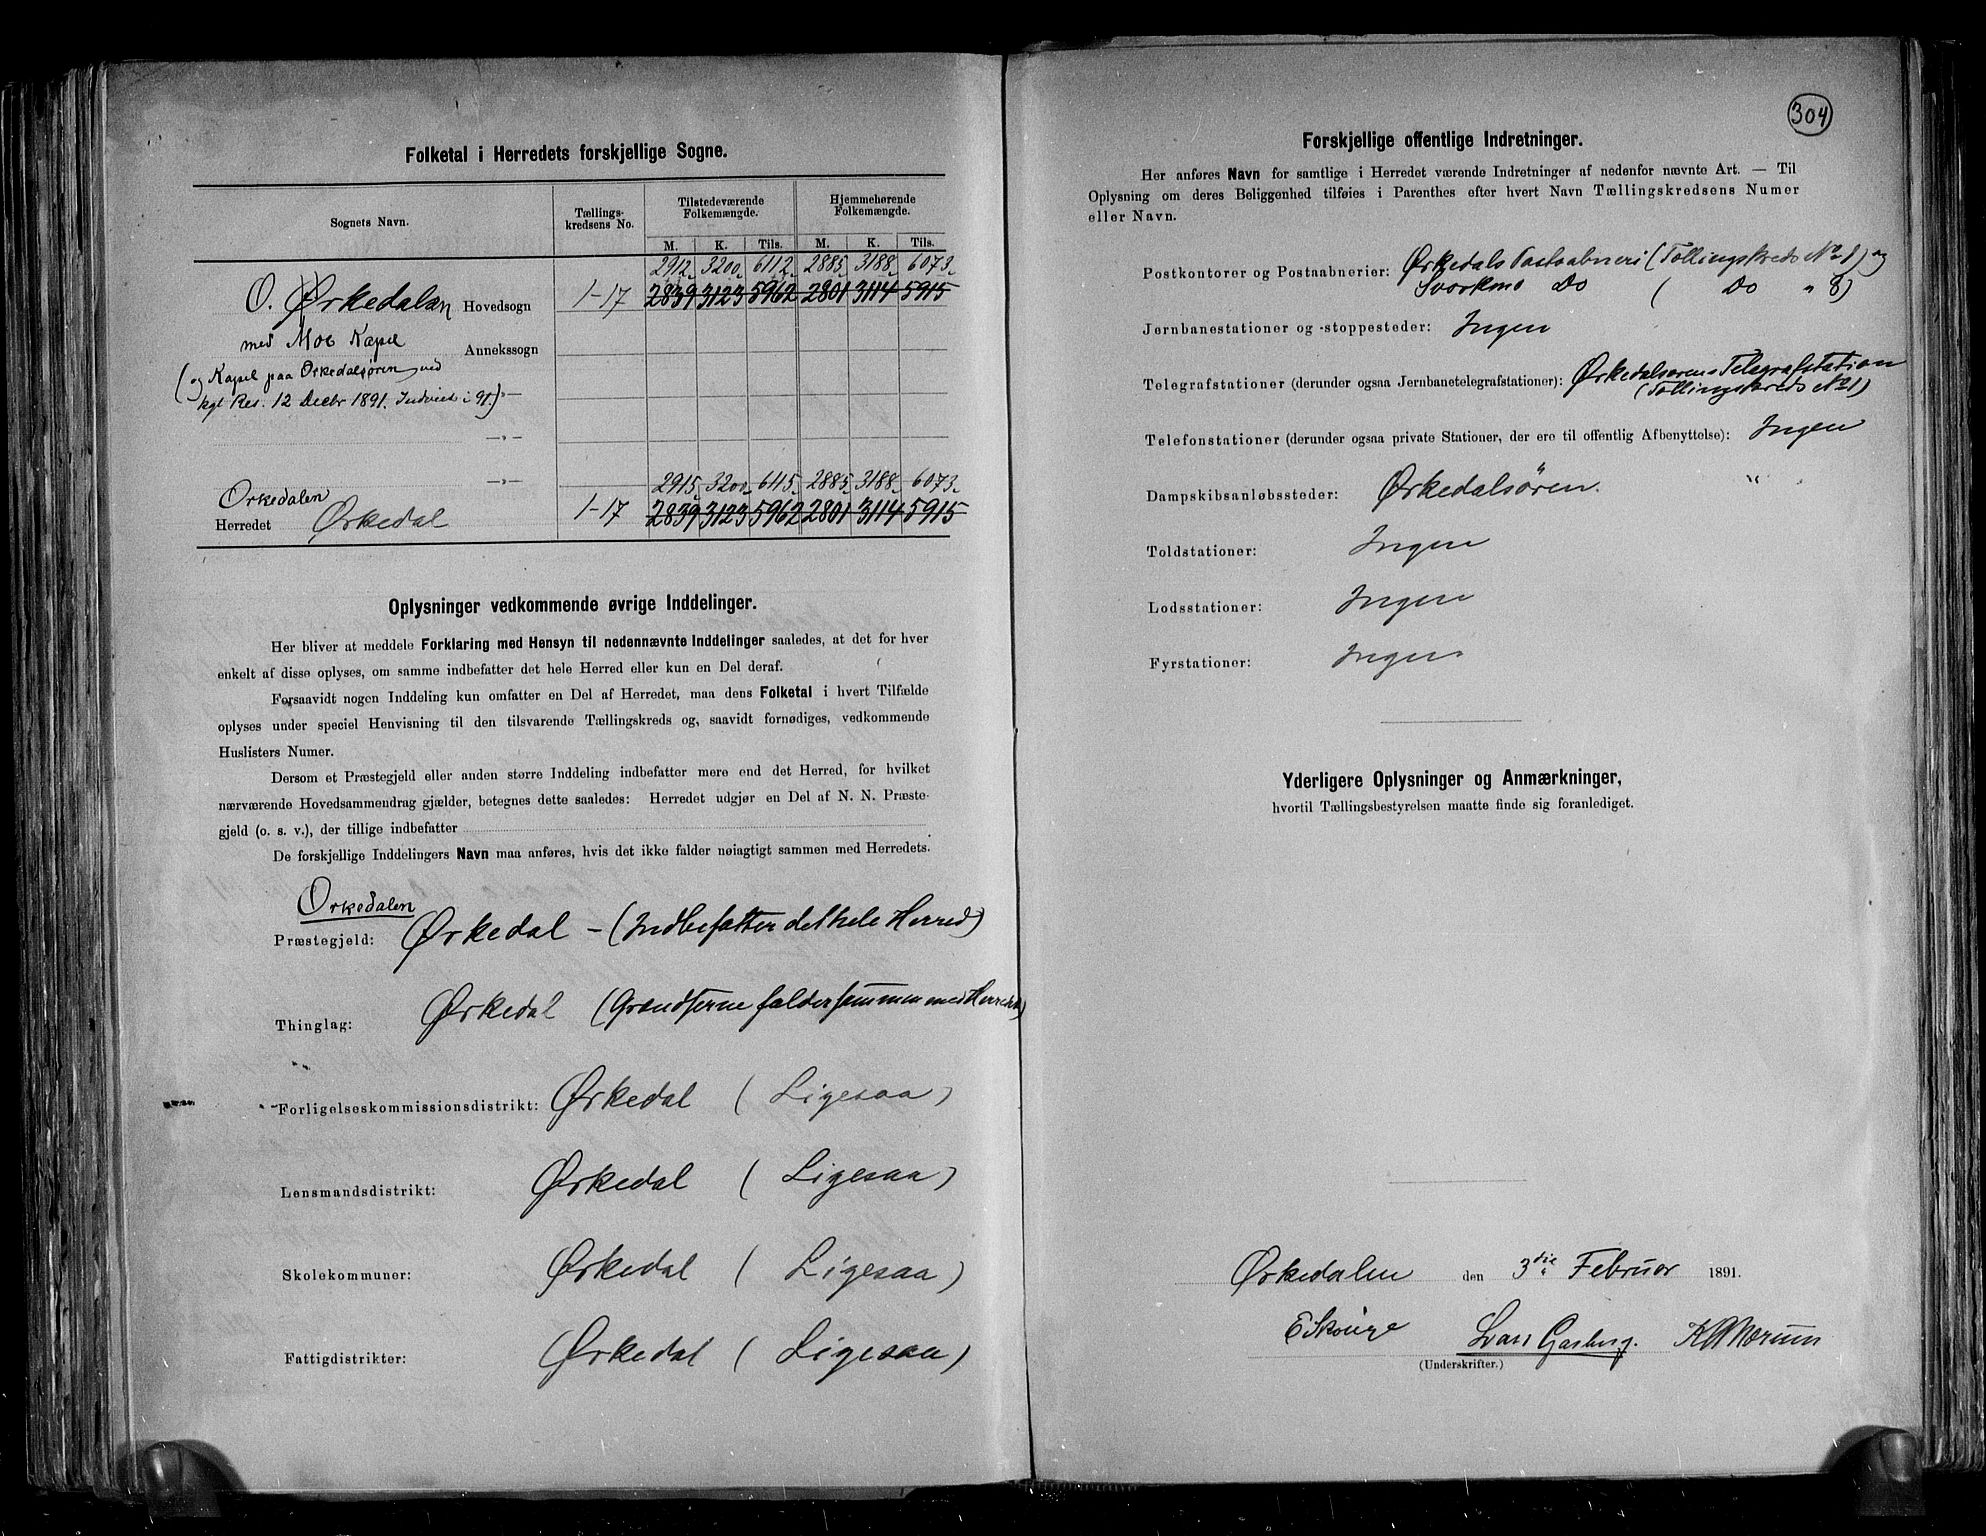 Folketal i Herredets forskjellige Sogne.
Sognets Navn.
Tællings-
kredsens No.
Tilstedeværende
Folkemængde.
Hjemmehørende
Folkemængde.
M. K. Tils. M. K. Tils.
2912 3200 6112 2885 3188 6073
O. Ørkedalen Hovedsogn 1-17 2839 3123 5962 2801 3114 5915
med Moe Kapel Annekssogn
(og Kapel paa Orkedalsøren ved
kgl Res. 12 Decbr 1891. Indviet i 91) -„-
-„-
-„-
2915 3200 6115 2885 3188 6073
Orkedalen
Herredet Ørkedal 1-17 2839 3123 5962 2801 3114 5915
Oplysninger vedkommende øvrige Inddelinger.
Her bliver at meddele Forklaring med Hensyn til nedennævnte Inddelinger saaledes, at det for hver
enkelt af disse oplyses, om samme indbefatter det hele Herred eller kun en Del deraf.
Forsaavidt nogen Inddeling kun omfatter en Del af Herredet, maa dens Folketal i hvert Tilfælde
oplyses under speciel Henvisning til den tilsvarende Tællingskreds og, saavidt fornødiges, vedkommende
Huslisters Numer.
Dersom et Præstegjeld eller anden større Inddeling indbefatter mere end det Herred, for hvilket
nærværende Hovedsammendrag gjælder, betegnes dette saaledes: Herredet udgjør en Del af N. N. Præste-
gjeld (o. s. v.), der tillige indbefatter
De forskjellige Inddelingers Navn maa anføres, hvis det ikke falder nøiagtigt sammen med Herredets.
Orkedalen
Præstegjeld: Ørkedal - (Indbefatter det hele Herred)
Thinglag: Ørkedal (Grændserne falder sammen med Herredets)
Forligelseskommissionsdistrikt: Ørkedal (Ligesaa)
Lensmandsdistrikt: Ørkedal (Ligesaa)
Skolekommuner: Ørkedal (Ligesaa)
Fattigdistrikter: Ørkedal (Ligesaa)
304
Forskjellige offentlige Indretninger.
Her anføres Navn for samtlige i Herredet værende Indretninger af nedenfor nævnte Art. — Til
Oplysning om deres Beliggenhed tilføies i Parenthes efter hvert Navn Tællingskredsens Numer
eller Navn.
Postkontorer og Postaabnerier: Ørkedals Postaabneri (Tællingskreds No 1) og
Svorkmo Do ( Do „ 8)
Jernbanestationer og -stoppesteder: Ingen
Telegrafstationer (derunder ogsaa Jernbanetelegrafstationer): Ørkedalsørens Telegrafstation
(Tællingskreds No 1)
Telefonstationer (derunder ogsaa private Stationer, der ere til offentlig Afbenyttelse): Ingen
Dampskibsanløbssteder: Ørkedalsøren.
Toldstationer: Ingen
Lodsstationer: Ingen
Fyrstationer: Ingen
Yderligere Oplysninger og Anmærkninger,
hvortil Tællingsbestyrelsen maatte finde sig foranlediget.
Ørkedalen den 3die Februar 1891.
E Skouge Lars Garberg.
(Underskrifter.)